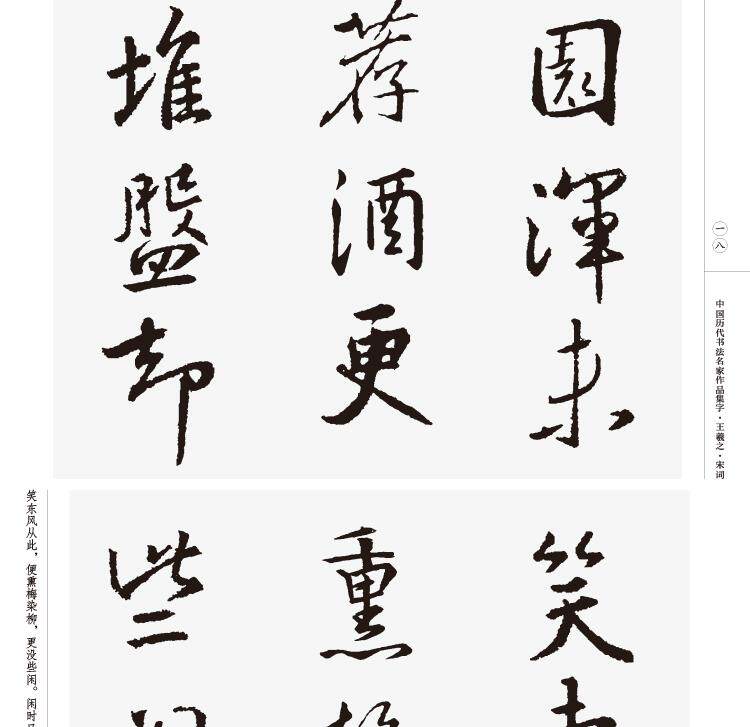 园浑未
荐酒更
堆盤却
一八
中国历代书法名家作品集字·王羲之·宋词
笑东风从此，便熏梅染柳，更没些闲。闲时
笑
熏
些